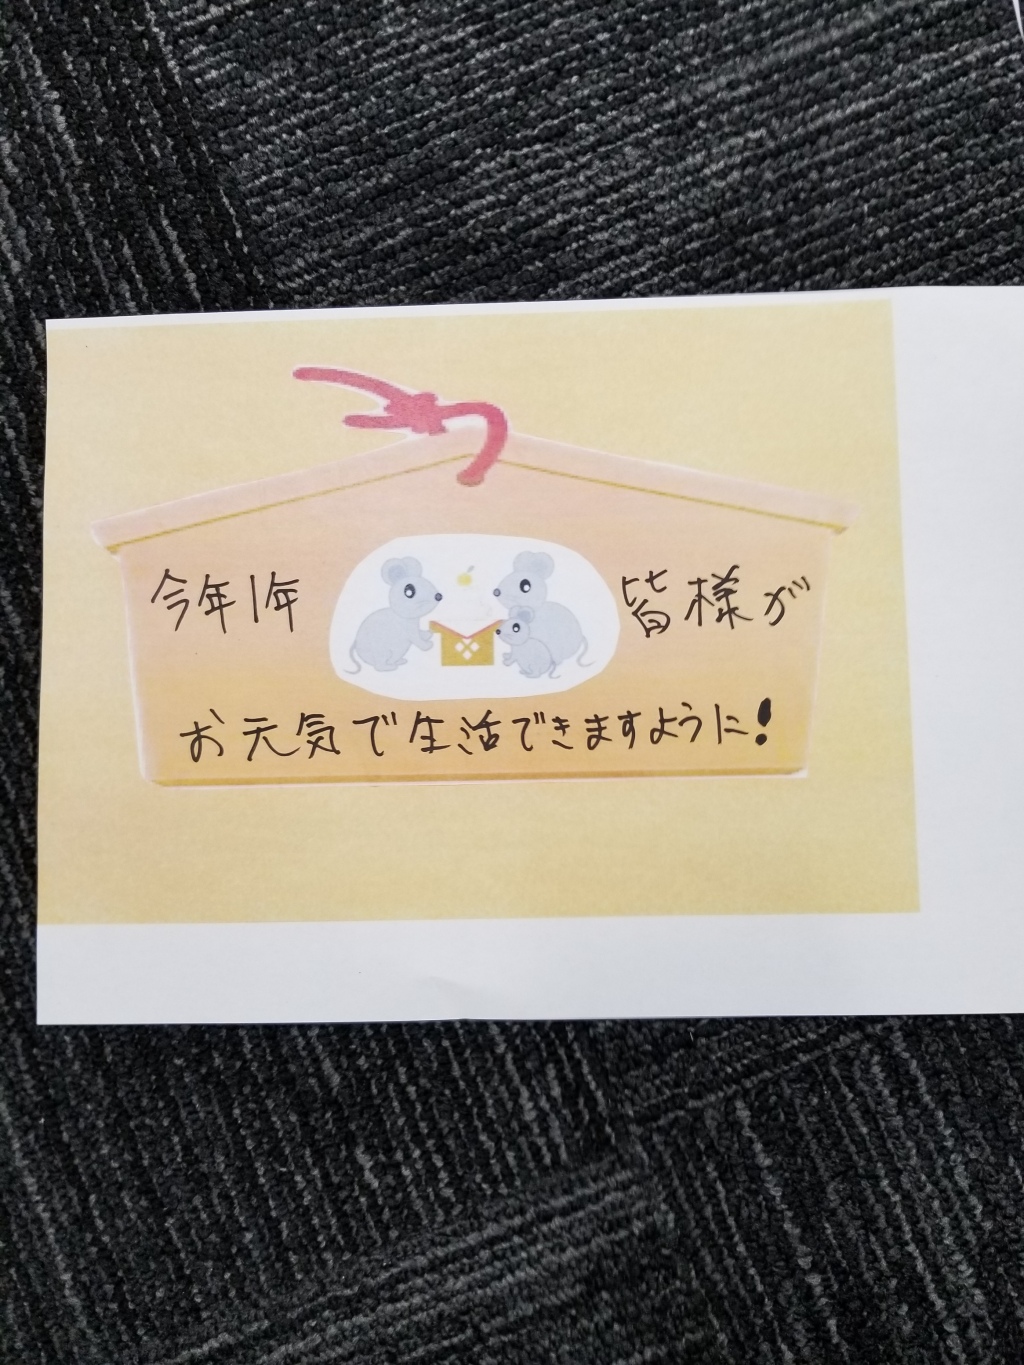 今年1年 皆様が
お元気で生活できますように!